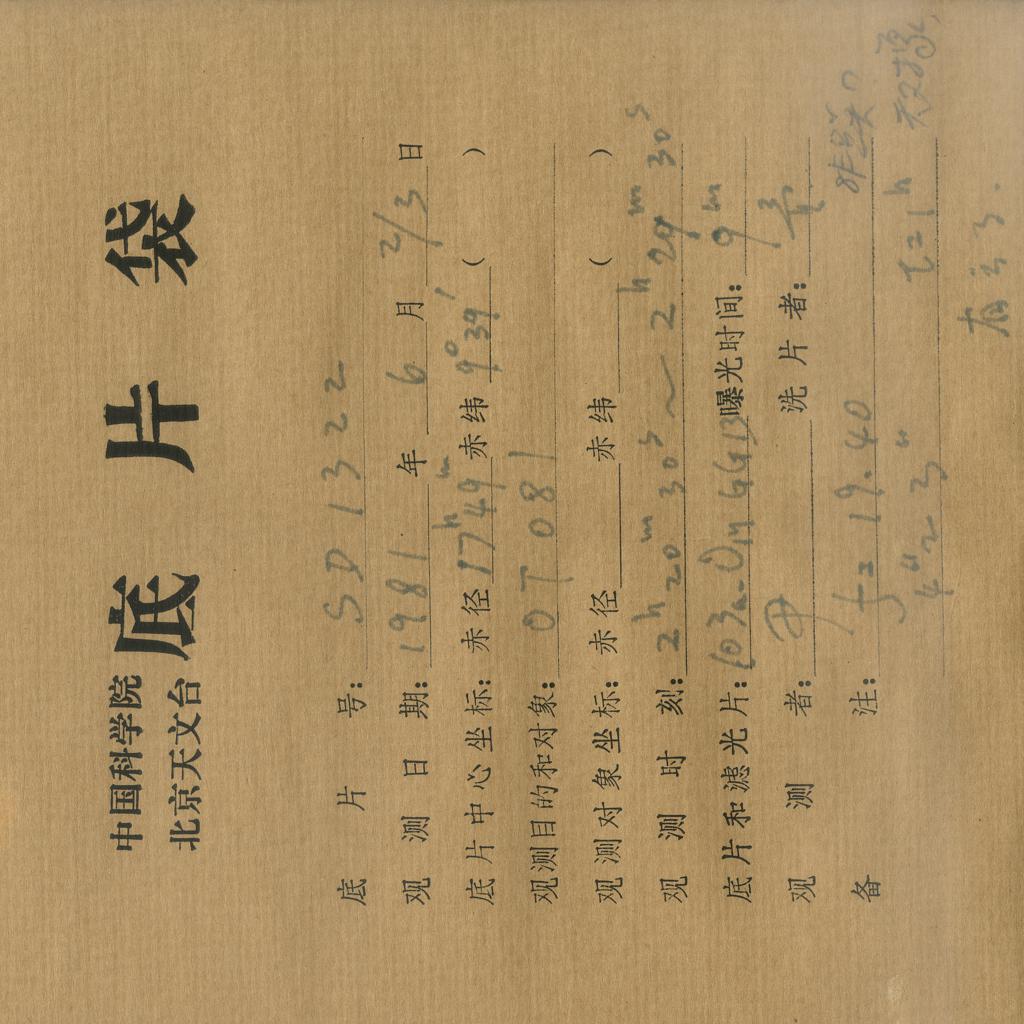 中国科学院
北京天文台
底片袋
底片号: SD 1322
观测日期: 1981年 6月 2/3日
底片中心坐标: 赤径 17h 49m 赤纬 9° 39′ ( )
观测目的和对象: OT 081
观测对象坐标: 赤径 赤纬 ( )
观测时刻: 2h 20m 30s ~ 2h 29m 30s
底片和滤光片: 103a-O GG13 曝光时间: 9m
观测者: 尹 洗片者:
备注: f= 19.40
t=1h 双像,
有